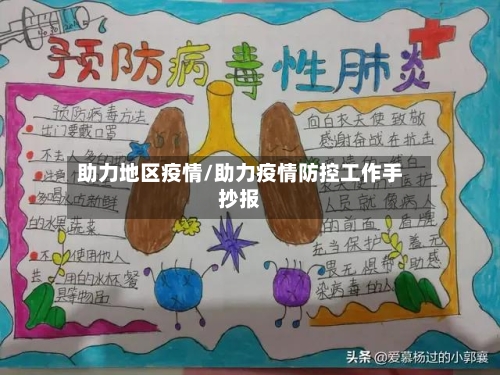 预防病毒性肺炎
预防病毒方法
出门要戴口罩
不去人多
多喝水吃新鲜
的水果蔬菜
不使用他人
用的水杯餐
具等物品
向白衣天使致敬
感谢奋战在抗击
人员就像病人
的前面
充当保护
畏无惧帮助感
染病毒的人
助力地区疫情/助力疫情防控工作手
抄报
头条 @爱慕杨过的小郭襄